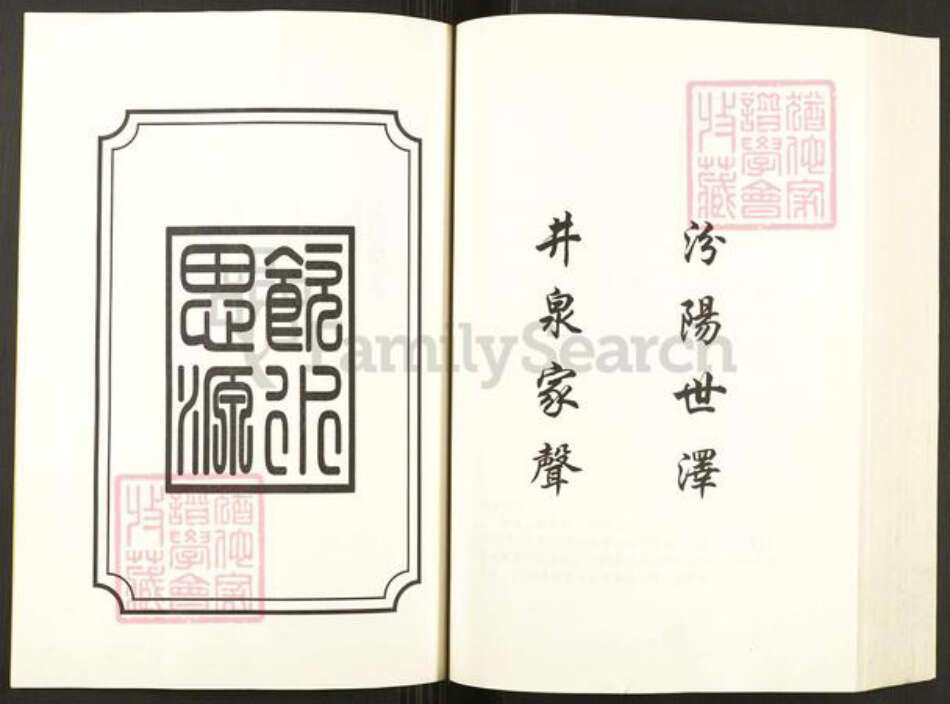 汾陽世澤
井泉家聲
飲水
思源
猶他家
譜學會
收藏
猶他家
譜學會
收藏
FamilySearch